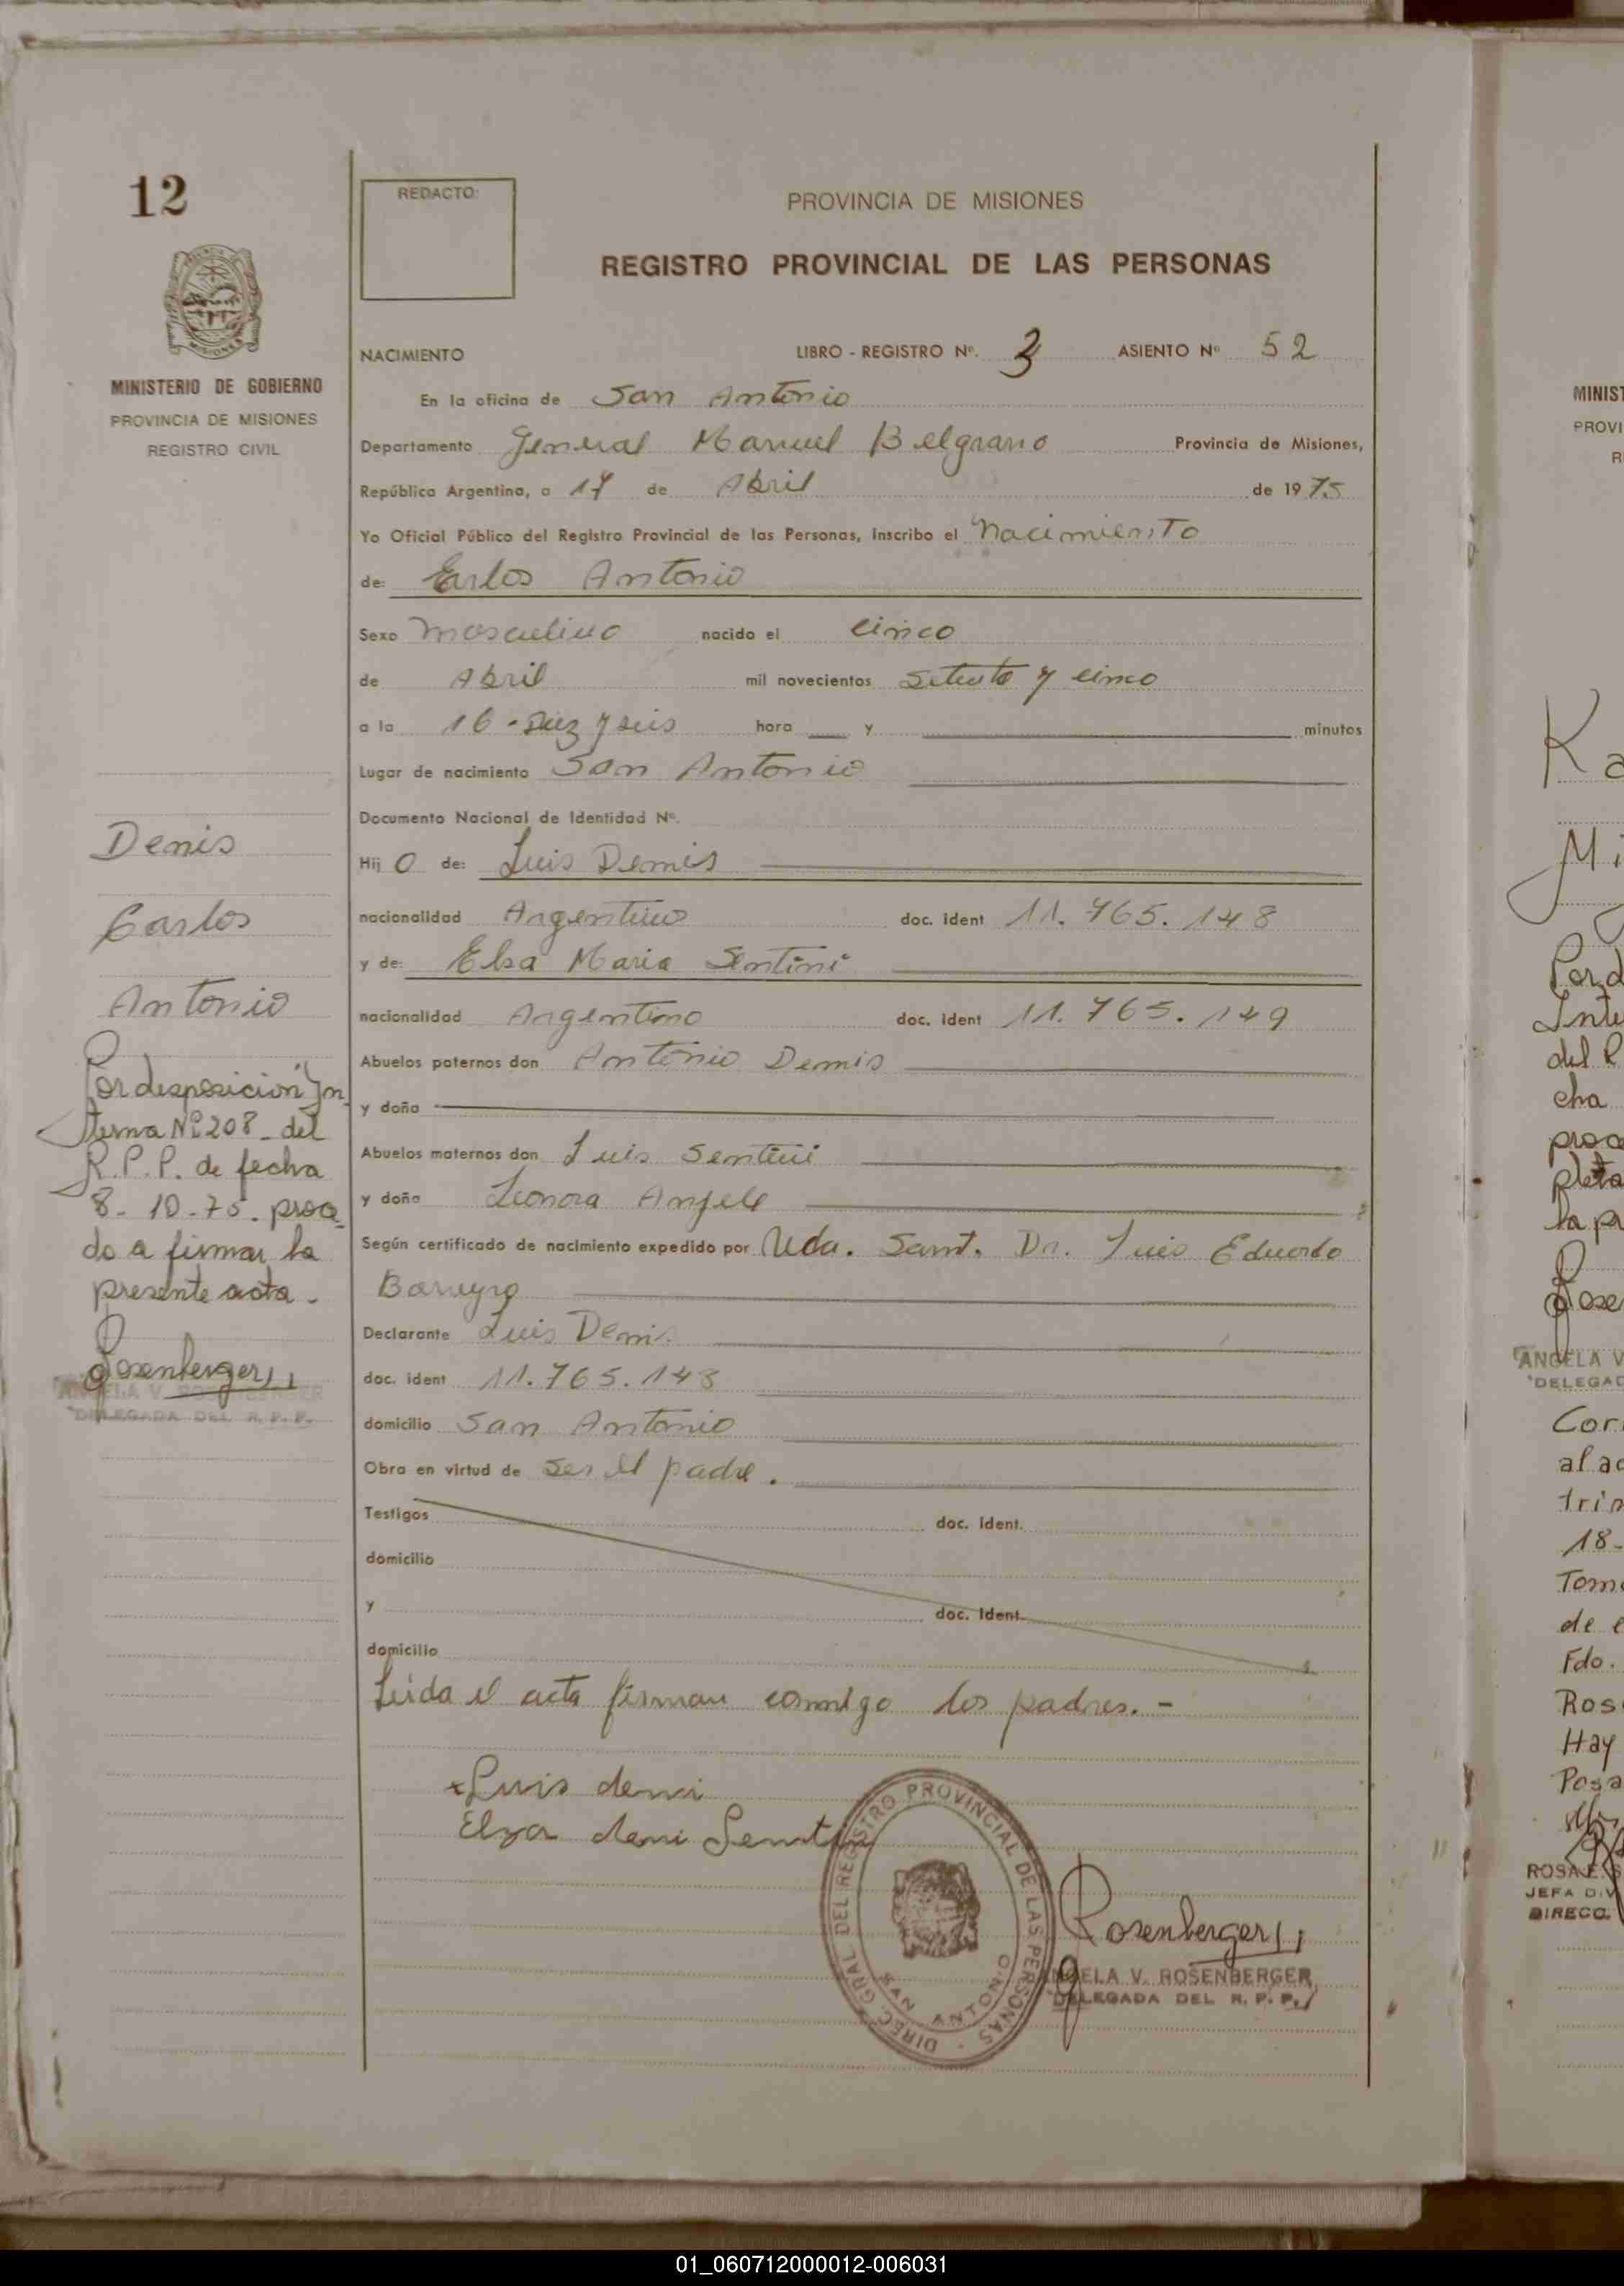 12
REDACTO:
PROVINCIA DE MISIONES
REGISTRO PROVINCIAL DE LAS PERSONAS
MISIONES
MINISTERIO DE GOBIERNO
PROVINCIA DE MISIONES
REGISTRO CIVIL
NACIMIENTO LIBRO - REGISTRO Nº. 3 ASIENTO Nº 52
En la oficina de San Antonio
Departamento General Manuel Belgrano Provincia de Misiones,
República Argentina, a 17 de Abril de 1975
Yo Oficial Público del Registro Provincial de las Personas, Inscribo el Nacimiento
de: Carlos Antonio
Sexo masculino nacido el cinco
de Abril mil novecientos setenta y cinco
a la 16 - Diez y seis hora y minutos
Lugar de nacimiento San Antonio
Documento Nacional de Identidad Nº.
Hij o de: Luis Denis
nacionalidad Argentino doc. ident 11.765.148
y de: Elsa Maria Sentini
nacionalidad Argentino doc. ident 11.765.149
Abuelos paternos don Antonio Denis
y doña
Abuelos maternos don Luis Sentini
y doña Leonora
Según certificado de nacimiento expedido por Uda. Sant. Dr. Luis Eduardo
Barreyro
Declarante Luis Denis
doc. ident 11.765.148
domicilio San Antonio
Obra en virtud de ser el padre.
Testigos doc. ident.
domicilio
y doc. ident.
domicilio
Leida el acta firman conmigo los padres. -
Luis deni
Elza deni Sentin
DIREC. GRAL DEL REGISTRO PROVINCIAL DE LAS PERSONAS
SAN ANTONIO
Rosenberger
ANGELA V. ROSENBERGER
DELEGADA DEL R. P. P.
Denis
Carlos
Antonio
Por desposición In
terna Nº 208 - del
R.P.P. de fecha
8-10-75. proce
do a firmar la
presente acta -
Rosenberger
ANGELA V. ROSENBERGER
DELEGADA DEL R. P. P.
MINIST
PROVI
R
Ka
Mi
Por d
Inte
del R
cha
proce
pleta
la pr
Rose
ANGELA V
DELEGAD
Corr
al ac
trin
18-
Tomo
de e
Fdo.
Ros
Hay
Posa
ROSA E. S
JEFA DIV
DIRECC.
01_060712000012-006031